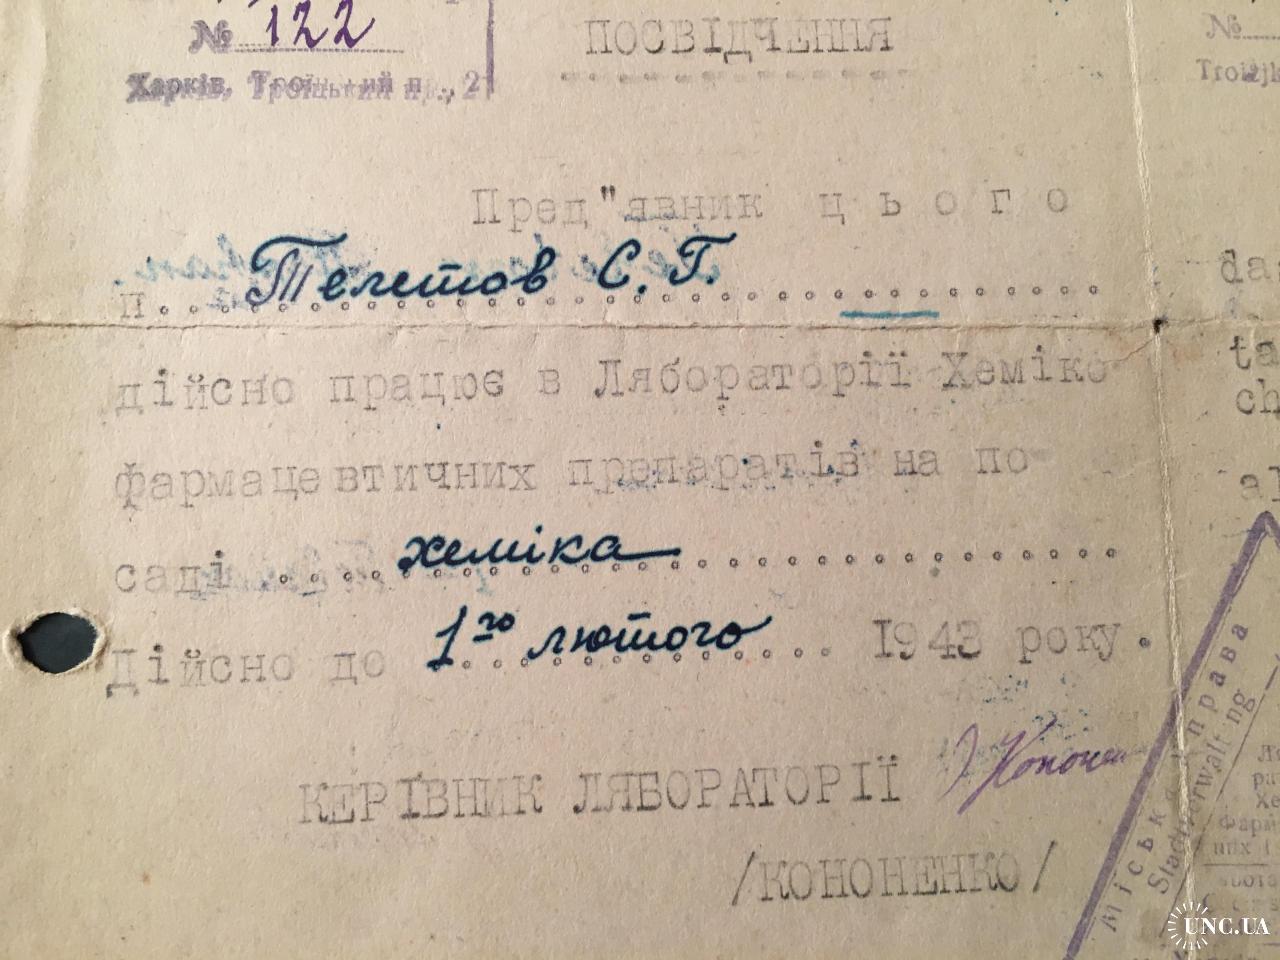 № 122
ПОСВІДЧЕННЯ
№
Харків, Троїцький п., 2
Пред"явник цього
п. Телетов С. Г.
дійсно працює в Ляборатoрії Хеміко
фармацевтичних препаратів на по
саді хеміка
Дійсно до 1го лютого 1943 року.
КЕРІВНИК ЛЯБОРАТОРІЇ
/КОНОНЕНКО/
da
ta
ch
al
Міська Управа
Stadtverwaltung
UNC.UA